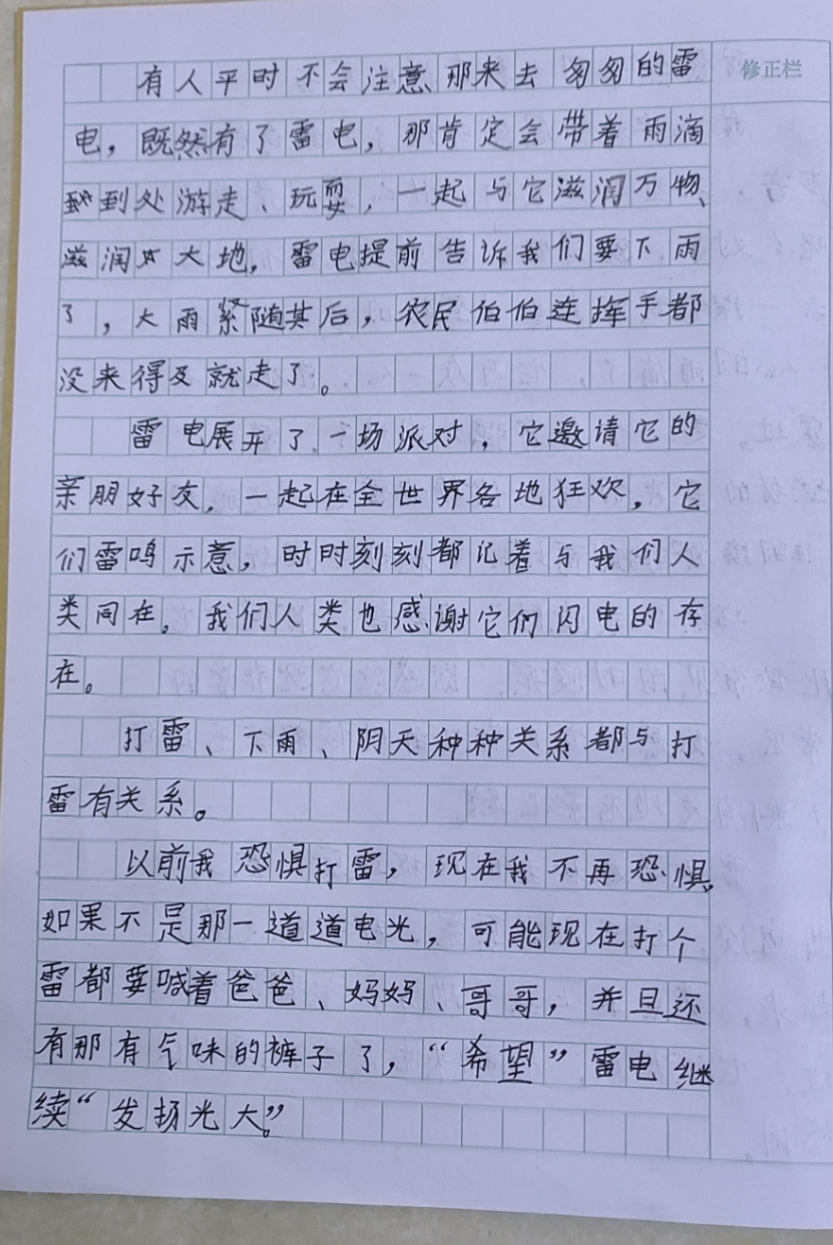 修正栏
有人平时不会注意那来去匆匆的雷
电，既然有了雷电，那肯定会带着雨滴
到处游走、玩耍，一起与它滋润万物、
滋润大地，雷电提前告诉我们要下雨
了，大雨紧随其后，农民伯伯连挥手都
没来得及就走了。
雷电展开了一场派对，它邀请它的
亲朋好友，一起在全世界各地狂欢，它
们雷鸣示意，时时刻刻都记着与我们人
类同在，我们人类也感谢它们闪电的存
在。
打雷、下雨、阴天种种关系都与打
雷有关系。
以前我恐惧打雷，现在我不再恐惧，
如果不是那一道道电光，可能现在打个
雷都要喊着爸爸、妈妈、哥哥，并且还
有那有气味的裤子了，“希望”雷电继
续“发扬光大”。